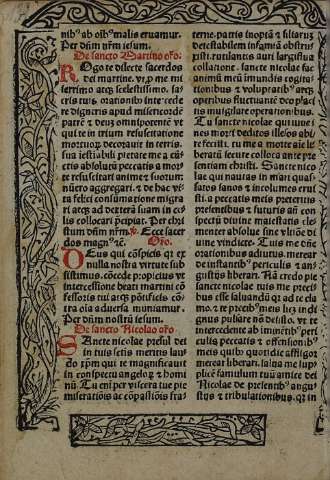 nibꝰ ab oībꝰ malis eruamur.
Per dūm nr̄m iesum.
De sancto Martino oīo.
Rogo te dilecte sacerdos
dei martine. vt ꝓ me mi
serrimo atqꝫ scelestissimo, sa
cris tuis orationibꝰ inte cede
re digneris apud misericordē
patrē ⁊ deuꝫ omnipotentē vt
qui te in trium resuscitatione
mortuoꝝ decorauit in terris.
sua iestabili pietate me a cūc
ctis absolutū peccatis a mor
te resuscitari animꝫ ⁊ suorum
numero aggregari. ⁊ de hac vi
ta felici consumatione migra
ri atqꝫ ad dexterā suam in ce
lis collocari p̄cipiat. Per chri
stum dūm nr̄m. Ecce sacer
dos magnꝰ ⁊c. Oro.
Deus qui cōspicis qꝛ ex
nulla nostra virtute sub
sistimus. cōcede ꝓpicius vt
intercessione beati martini cō
fessoris tui atqꝫ pōtificis cō
tra oīa aduersa muniamur.
Per dūm nostrū iesum.
De sancto Nicolao oīo.
Sancte nicolae presul dei
in tuis letis meritis lau
do xp̄m qui te magnificauit
in conspectu angeloꝝ ⁊ homi
nū Tu em̄ per viscera tue pie
miserationis ac cōpastiōis fra
terne. patris inopiā ⁊ filiarꝫ
detestabilem infamiā obstru
xisti. rutilantis auri largistua
collatione. sancte nicolae fac
animū meū īmundis cogita
tionibus ⁊ voluptatibꝰ atqꝫ
operibus fluctuantē deo placi
tis inuigilare operationibus.
Tu sancte nicolae qui iuue
nes morti deditos illesos abi
re fecisti. tu me a morte aīe li
beratū secure colloca ante pre
sentiam christi. Sancte nico
lae qui nautas in mari quas
satos sanos ⁊ incolumes erui
sti. a peccatis meis preteritis
presentibus ⁊ futuris añ con
spectū diuine maiestatis cle
menter absolue sine vltiōe di
uine vindicte. Tuis me dñe
orationibus adiutus. merear
de instantibꝰ periculis ⁊ an
gustijs liberari. Nā credo pie
sancte nicolae tuis me preci
bus esse saluandū qꝛ ad te cla
mo. ⁊ te precibꝰ meis licꝫ indi
gnus pulsare nō desisto. vt te
intercedente ab iminētibꝰ peri
culis peccatis ⁊ offensionibꝰ
meis quibꝰ quotidie affligor
merear liberari. laꝫta me sup
plice famulum tuū amice dei
Nicolae de presentibꝰ angu
stijs ⁊ tribulationibus. qꝛ in